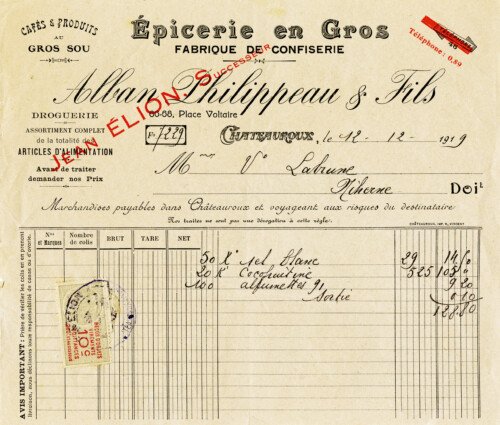 CAFÉS & PRODUITS
AU
GROS SOU
Épicerie en Gros
FABRIQUE DE CONFISERIE
Téléphone: 0,89
Alban Philippeau & Fils
JEAN ÉLION, SUCCESSEUR
66-68, Place Voltaire
DROGUERIE
ASSORTIMENT COMPLET
de la totalité des
ARTICLES D'ALIMENTATION
Avant de traiter
demander nos Prix
Fº 229
CHATEAUROUX, le 12-12-1919
M me Ve Labrune
Doit
Marchandises payables dans Châteauroux et voyageant aux risques du destinataire
Nos traites ne sont pas une dérogation à cette règle.
CHÂTEAUROUX, IMP.
Nos et Marques
Nombre de colis
BRUT
TARE
NET
50 K sel blanc 29 14 50
20 K 525 105
100 allumettes 9 20
Sortie 0 10
128 80
10 c
AVIS IMPORTANT: Prière de vérifier les colis et en prendre livraison, nous déclinons toute responsabilité de casse ou d'avarie.